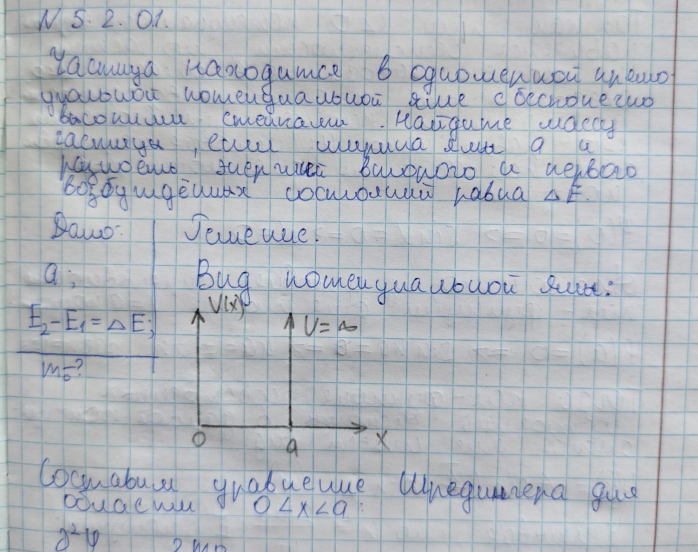 N 5. 2. 01.
Частица находится в одномерной прямо-
угольной потенциальной яме с бесконечно
высокими стенками. Найдите массу
частицы, если ширина ямы a и
разность энергий второго и первого
возбуждённых состояний равна ΔE.
Дано: Решение.
a; Вид потенциальной ямы:
E₂-E₁=ΔE;
m₀-?
V(x)
V=∞
0 a x
Составим уравнение Шредингера для
области 0<x<a: